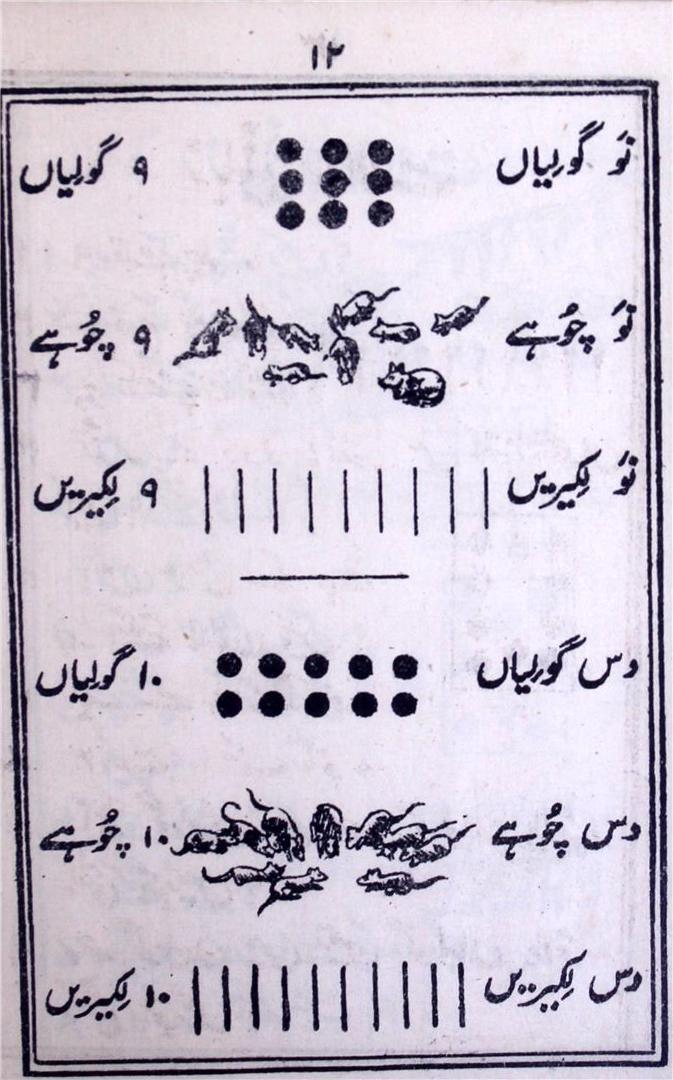 ۱۲
نَو گولیاں ۹ گولیاں
نَو چُوہے ۹ چُوہے
نَو لکِیریں ۹ لکِیریں
دس گولیاں ۱۰ گولیاں
دس چُوہے ۱۰ چُوہے
دس لکِیریں ۱۰ لکِیریں